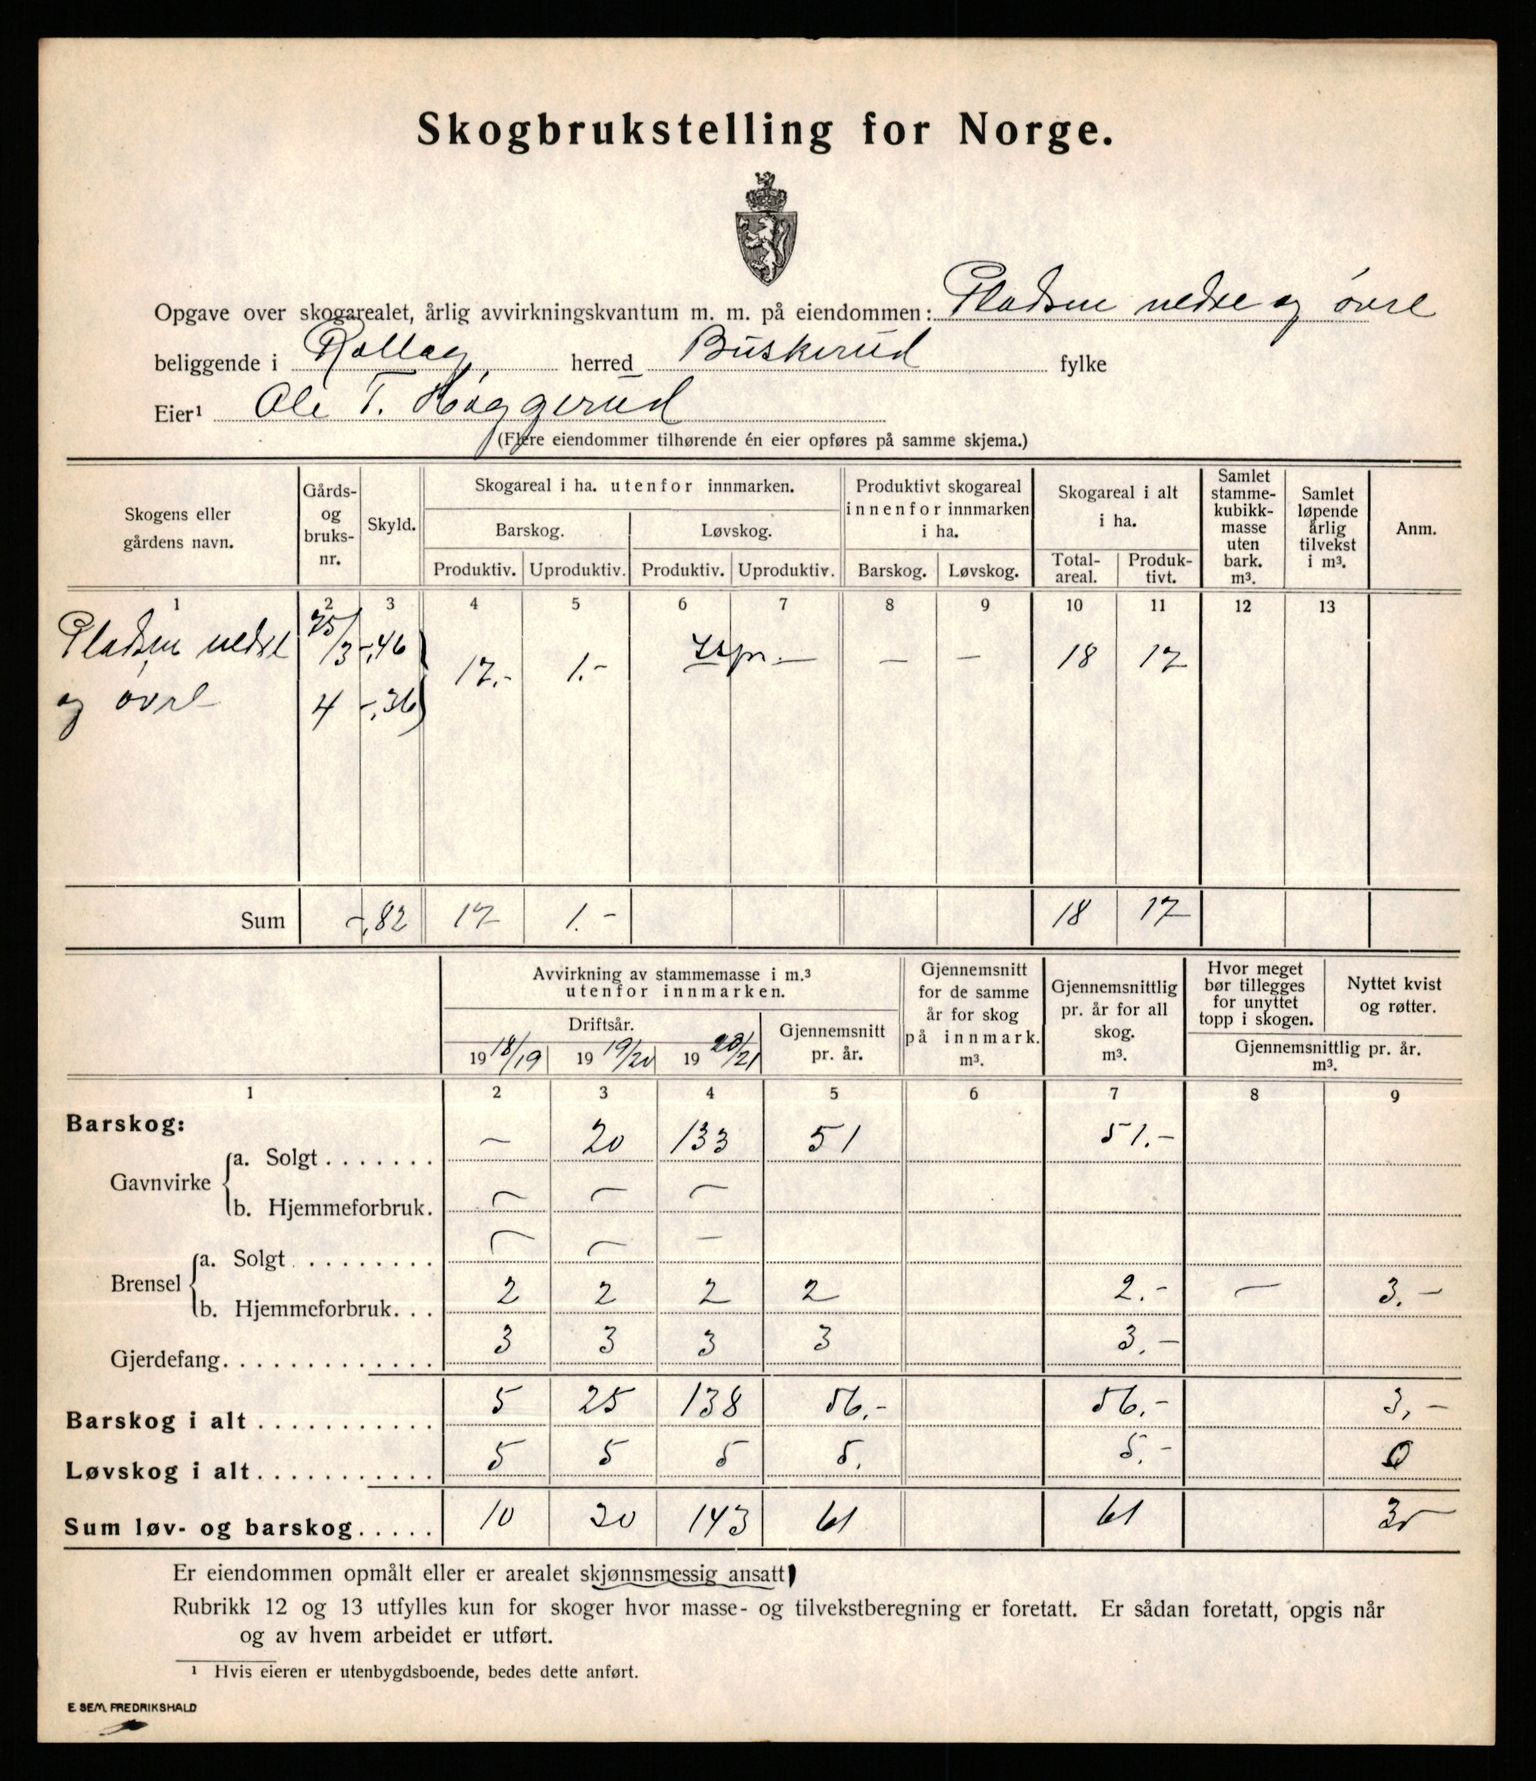 Skogbrukstelling for Norge.
Opgave over skogarealet, årlig avvirkningskvantum m. m. på eiendommen: Pladsen nedre og øvre
beliggende i Rollag herred Buskerud fylke
Eier¹ Ole T. Haggerud
(Flere eiendommer tilhørende én eier opføres på samme skjema.)
Skogens eller gårdens navn. Gårds- og bruks- nr. Skyld. Skogareal i ha. utenfor innmarken. Produktivt skogareal innenfor innmarken i ha. Skogareal i alt i ha. Samlet stamme- kubikk- masse uten bark. m³. Samlet løpende årlig tilvekst i m³. Anm.
Barskog. Løvskog.
Produktiv. Uproduktiv. Produktiv. Uproduktiv. Barskog. Løvskog. Total- areal. Produk- tivt.
1 2 3 4 5 6 7 8 9 10 11 12 13
Pladsen nedre 75/3 -,46 17.- 1.- — — — 18 17
og øvre 4 -,36
Sum -,82 17 1.- 18 17
Avvirkning av stammemasse i m.³ utenfor innmarken. Gjennemsnitt for de samme år for skog på innmark. m³. Gjennemsnittlig pr. år for all skog. m³. Hvor meget bør tillegges for unyttet topp i skogen. Nyttet kvist og røtter.
Driftsår. Gjennemsnitt pr. år. Gjennemsnittlig pr. år. m³.
19 18/19 19 19/20 19 20/21
1 2 3 4 5 6 7 8 9
Barskog:
Gavnvirke a. Solgt . . . . . . . — 20 133 51 51.-
b. Hjemmeforbruk. — — —
Brensel a. Solgt . . . . . . . . . — — —
b. Hjemmeforbruk. . . 2 2 2 2 2.- — 3.-
Gjerdefang. . . . . . . . . . . . . . 3 3 3 3 3.-
Barskog i alt . . . . . . . . . . . 5 25 138 56.- 56.- 3,-
Løvskog i alt. . . . . . . . . . . 5 5 5 5. 5.- 0
Sum løv- og barskog. . . . . 10 30 143 61 61 3
Er eiendommen opmålt eller er arealet skjønnsmessig ansatt
Rubrikk 12 og 13 utfylles kun for skoger hvor masse- og tilvekstberegning er foretatt. Er sådan foretatt, opgis når
og av hvem arbeidet er utført.
¹ Hvis eieren er utenbygdsboende, bedes dette anført.
E. SEM, FREDRIKSHALD